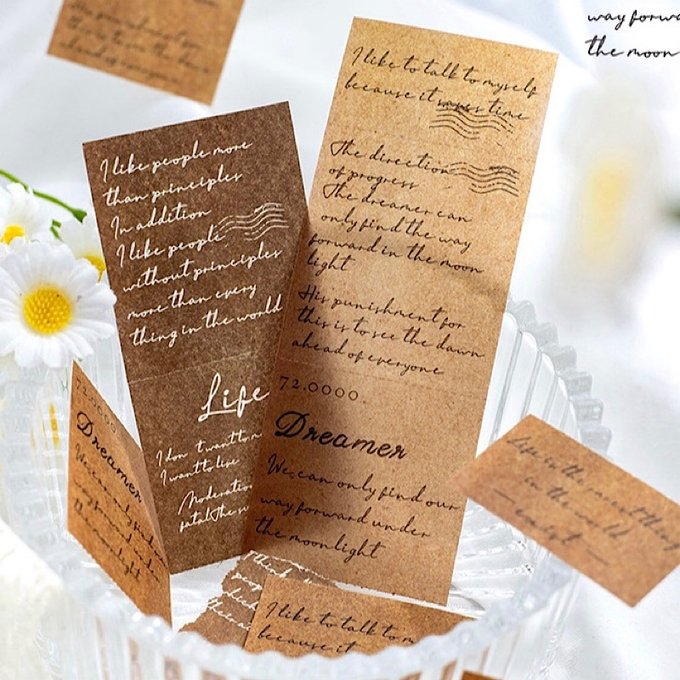 way forwa
the moon
I like people more
than principles
In addition
I like people
without principles
more than every
thing in the world
Life
I don't want to
I want to live
Moderation
fatal The su
I like to talk to myself
because it saves time
The direction
of progress
The dreamer can
only find the way
forward in the moon
light
His punishment for
this is to see the dawn
ahead of everyone
72.0000.
Dreamer
We can only find our
way forward under
the moonlight
72.0000.
Dreamer
We can only find
way forward und
the moonlight
Life is the rarest thing
in the world
— exist —
I like to talk to m
because it